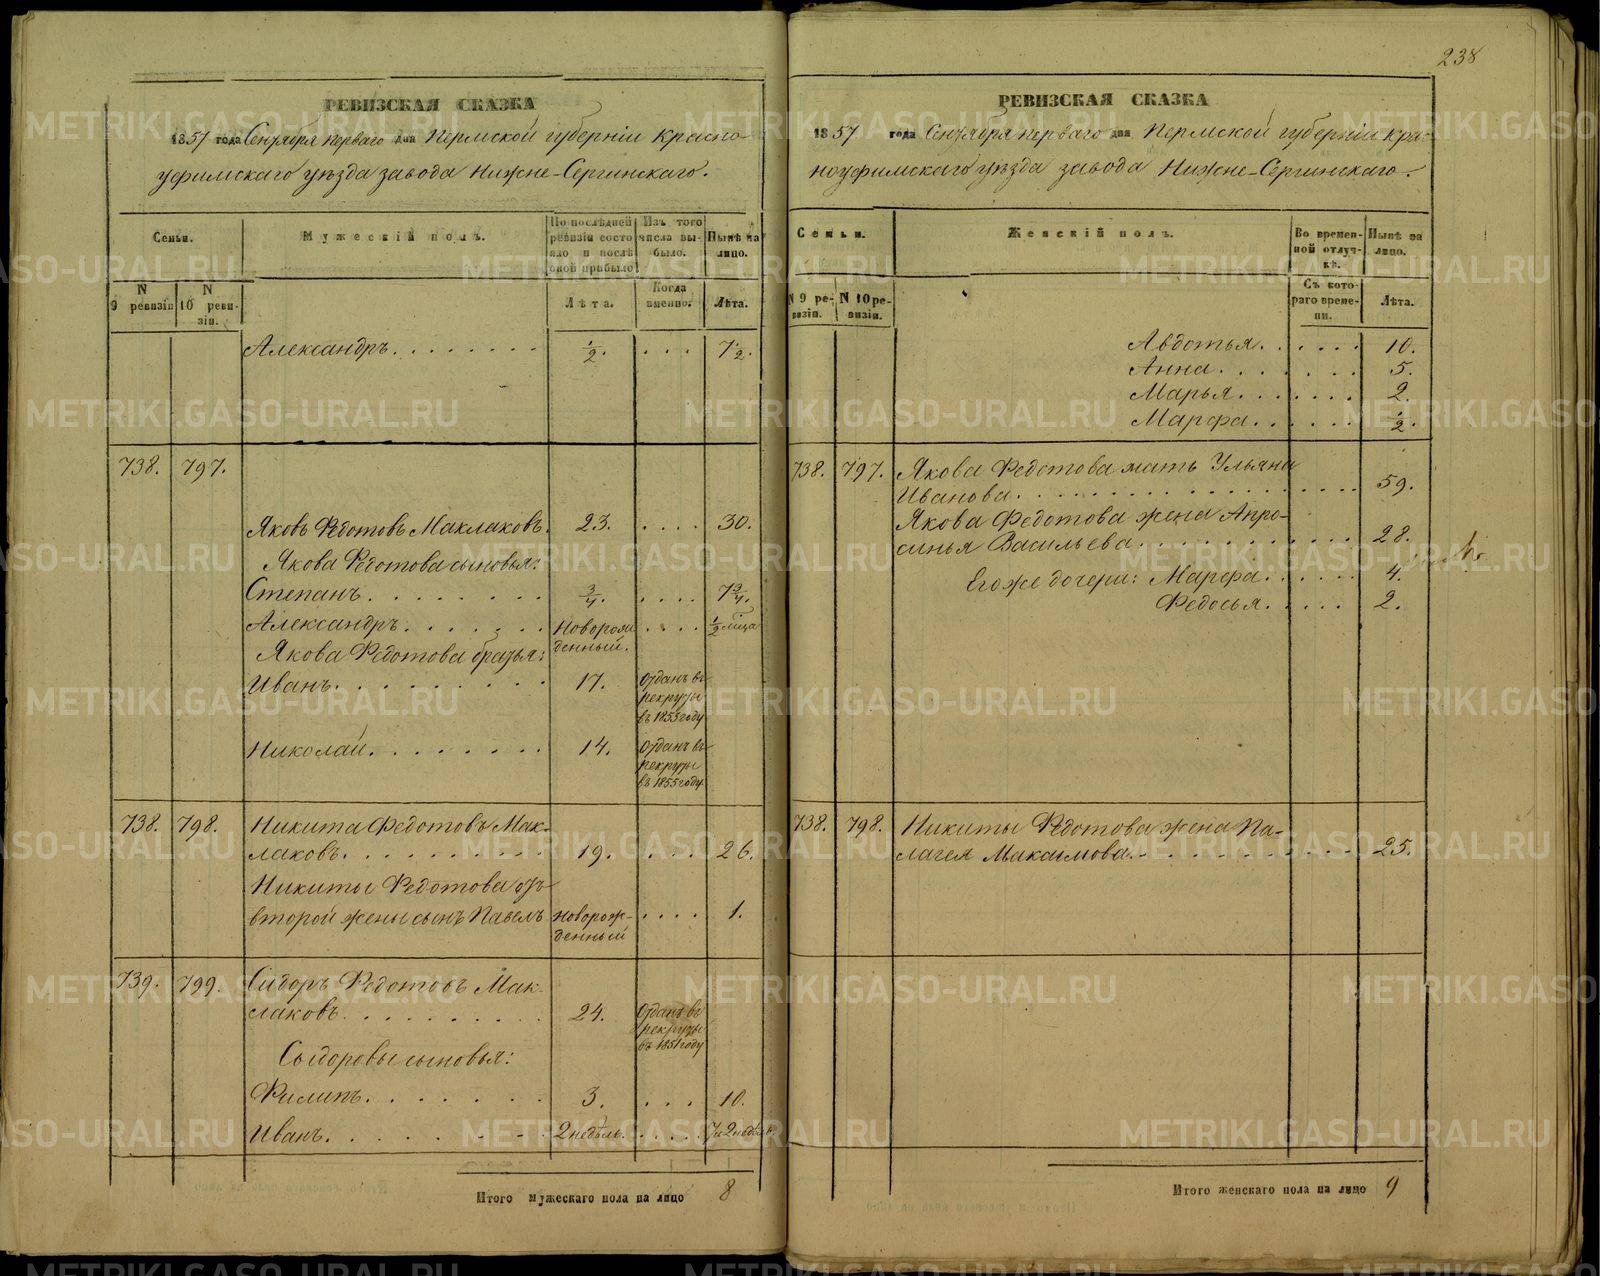 238
РЕВИЗСКАЯ СКАЗКА
1857 года Сентября перваго дня Пермской губерніи Красно-
уфимскаго уѣзда завода Нижне-Сергинскаго.
Семьи.
Мужескій полъ.
По послѣдней ревизіи состояло и послѣ оной прибыло
Изъ того числа выбыло.
Нынѣ на лицо.
N 9 ревизіи
N 10 ревизіи.
Лѣта.
Когда именно.
Лѣта.
Александръ. ½. 7½.
738. 797.
Яковъ Федотовъ Маклаковъ. 23. 30.
Якова Федотова сыновья:
Степанъ. ¾. 7¾.
Александръ. Новорожденный. ½
Якова Федотова братья:
Иванъ. 17. Отданъ въ рекруты въ 1855 году
Николай. 14. Отданъ въ рекруты въ 1855 году
738. 798. Никита Федотовъ Мак-
лаковъ. 19. 26.
Никиты Федотова отъ
второй жены сынъ Павелъ Новорожденный 1.
739. 799. Сидоръ Федотовъ Мак-
лаковъ. 24. Отданъ въ рекруты въ 1851 году
Сидоровы сыновья:
Филипъ. 3. 10.
Иванъ. 2 недѣль. 7 и 2 недѣль
Итого мужескаго пола на лицо 8
РЕВИЗСКАЯ СКАЗКА
1857 года Сентября перваго дня Пермской губерніи Крас-
ноуфимскаго уѣзда завода Нижне-Сергинскаго.
Семьи.
Женскій полъ.
Во временной отлучкѣ.
Нынѣ на лицо.
N 9 ревизіи.
N 10 ревизіи.
Съ котораго времени.
Лѣта.
Авдотья. 10.
Анна. 5.
Марья. 2.
Марфа. ½.
738. 797. Якова Федотова мать Ульяна
Иванова. 59.
Якова Федотова жена Апро-
синья Васильева. 28.
Его же дочери: Марфа. 4.
Федосья. 2.
738. 798. Никиты Федотова жена Па-
лагея Максимова. 25.
Итого женскаго пола на лицо 9
METRIKI.GASO-URAL.RU